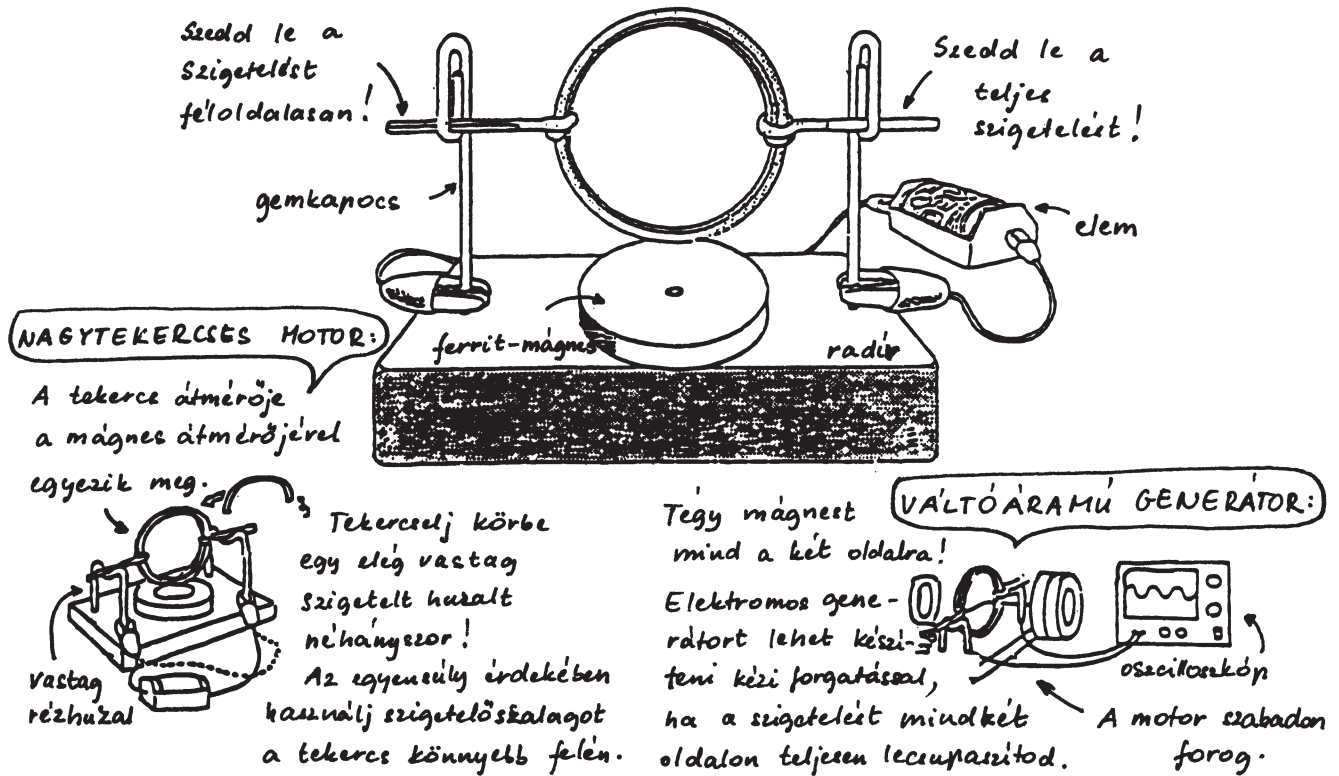 Szedd le a
szigetelést
féloldalasan!
Szedd le a
teljes
szigetelést!
gemkapocs
elem
ferrit-mágnes
radír
NAGYTEKERCSES MOTOR:
A tekercs átmérője
a mágnes átmérőjével
egyezik meg.
Tekercselj körbe
egy elég vastag
szigetelt huzalt
néhányszor!
Az egyensúly érdekében
használj szigetelőszalagot
a tekercs könnyebb felén.
vastag
rézhuzal
VÁLTÓÁRAMÚ GENERÁTOR:
Tégy mágnest
mind a két oldalra!
Elektromos gene-
rátort lehet készí-
teni kézi forgatással,
ha a szigetelést mindkét
oldalon teljesen lecsupaszítod.
oszcilloszkóp
A motor szabadon
forog.